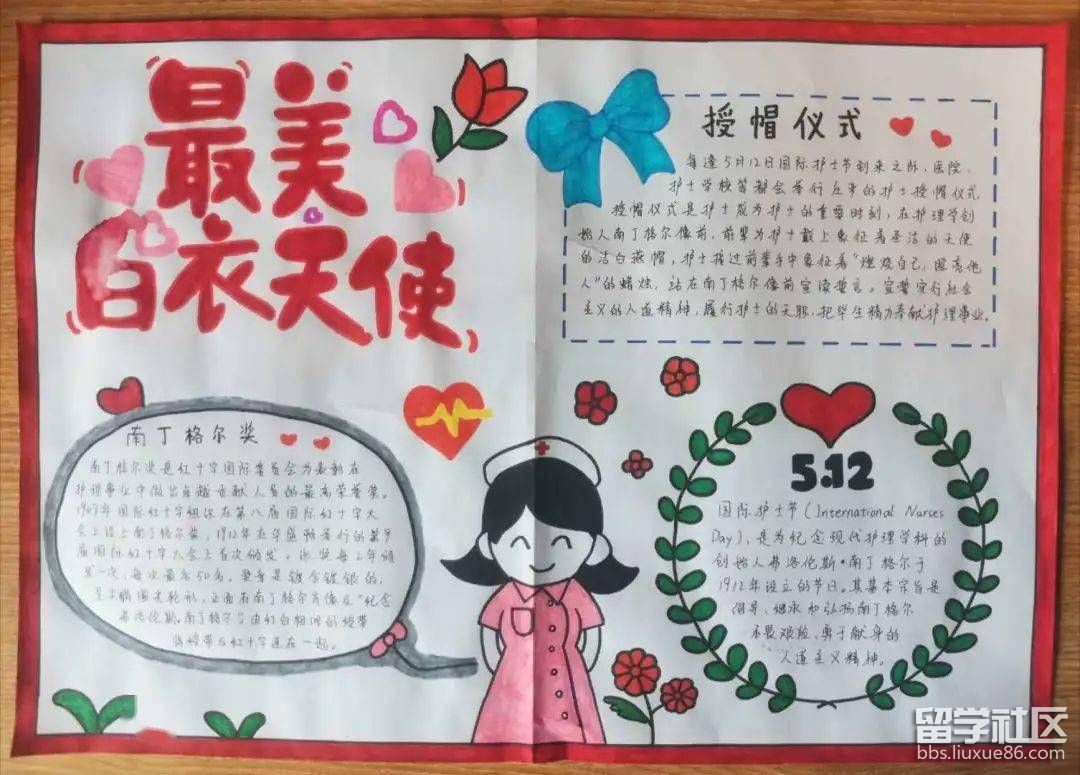 最美
白衣天使
授帽仪式
每逢5月12日国际护士节到来之际,医院、
护士学校等都会举行庄重的护士授帽仪式
授帽仪式是护士成为护士的重要时刻,在护理学创
始人南丁格尔像前,前辈为护士戴上象征着圣洁的天使
的洁白燕帽,护士接过前辈手中象征着“燃烧自己,照亮他
人”的蜡烛,站在南丁格尔像前宣读誓言。宣誓实行社会
主义的人道精神,履行护士的天职,把毕生精力奉献护理事业。
南丁格尔奖
南丁格尔奖是红十字国际委员会为表彰在
护理事业中做出卓越贡献人员的最高荣誉奖。
1907年国际红十字组织在第八届国际红十字大
会上设上南丁格尔奖,1912年在华盛顿举行的第9
届国际红十字大会上首次颁发。 每2年颁
发一次,每次最多50名,奖章是镀金镀银的,
正面有南丁格尔肖像及“纪念
弗洛伦斯.南丁格尔” 由红白相间的绶带
将绶带与红十字连在一起。
5.12
国际护士节(International Nurses
Day),是为纪念现代护理学科的
创始人弗洛伦斯·南丁格尔于
1912年设立的节日。其基本宗旨是
倡导、继承和弘扬南丁格尔
不畏艰险、勇于献身的
人道主义精神。
留学社区
bbs.liuxue86.com